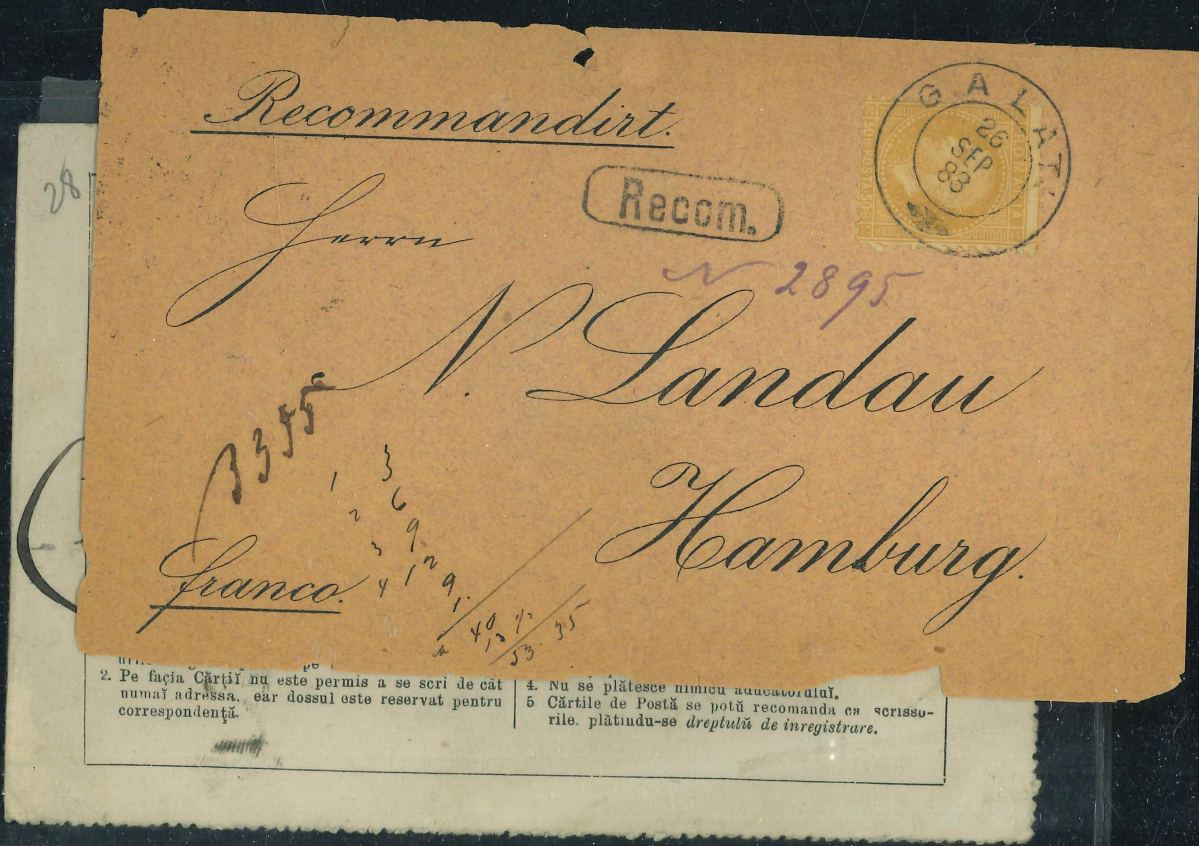 Recommandirt.
GALATI
26
SEP
83
ROMANIA
Recom.
Herrn
N 2895
N. Landau
3355
Hamburg.
1 3
2 6
3 9
4 12
franco.
40
53 35
28
2. Pe façia Cărţiĭ nu este permis a se scri de cât
numaĭ adressa, ear dossul este reservat pentru
correspondenţă.
4. Nu se plătesce nimicu aducătoruluĭ.
5 Cărtile de Postă se potŭ recomanda ca scrisso-
rile, plătindu-se dreptulŭ de inregistrare.